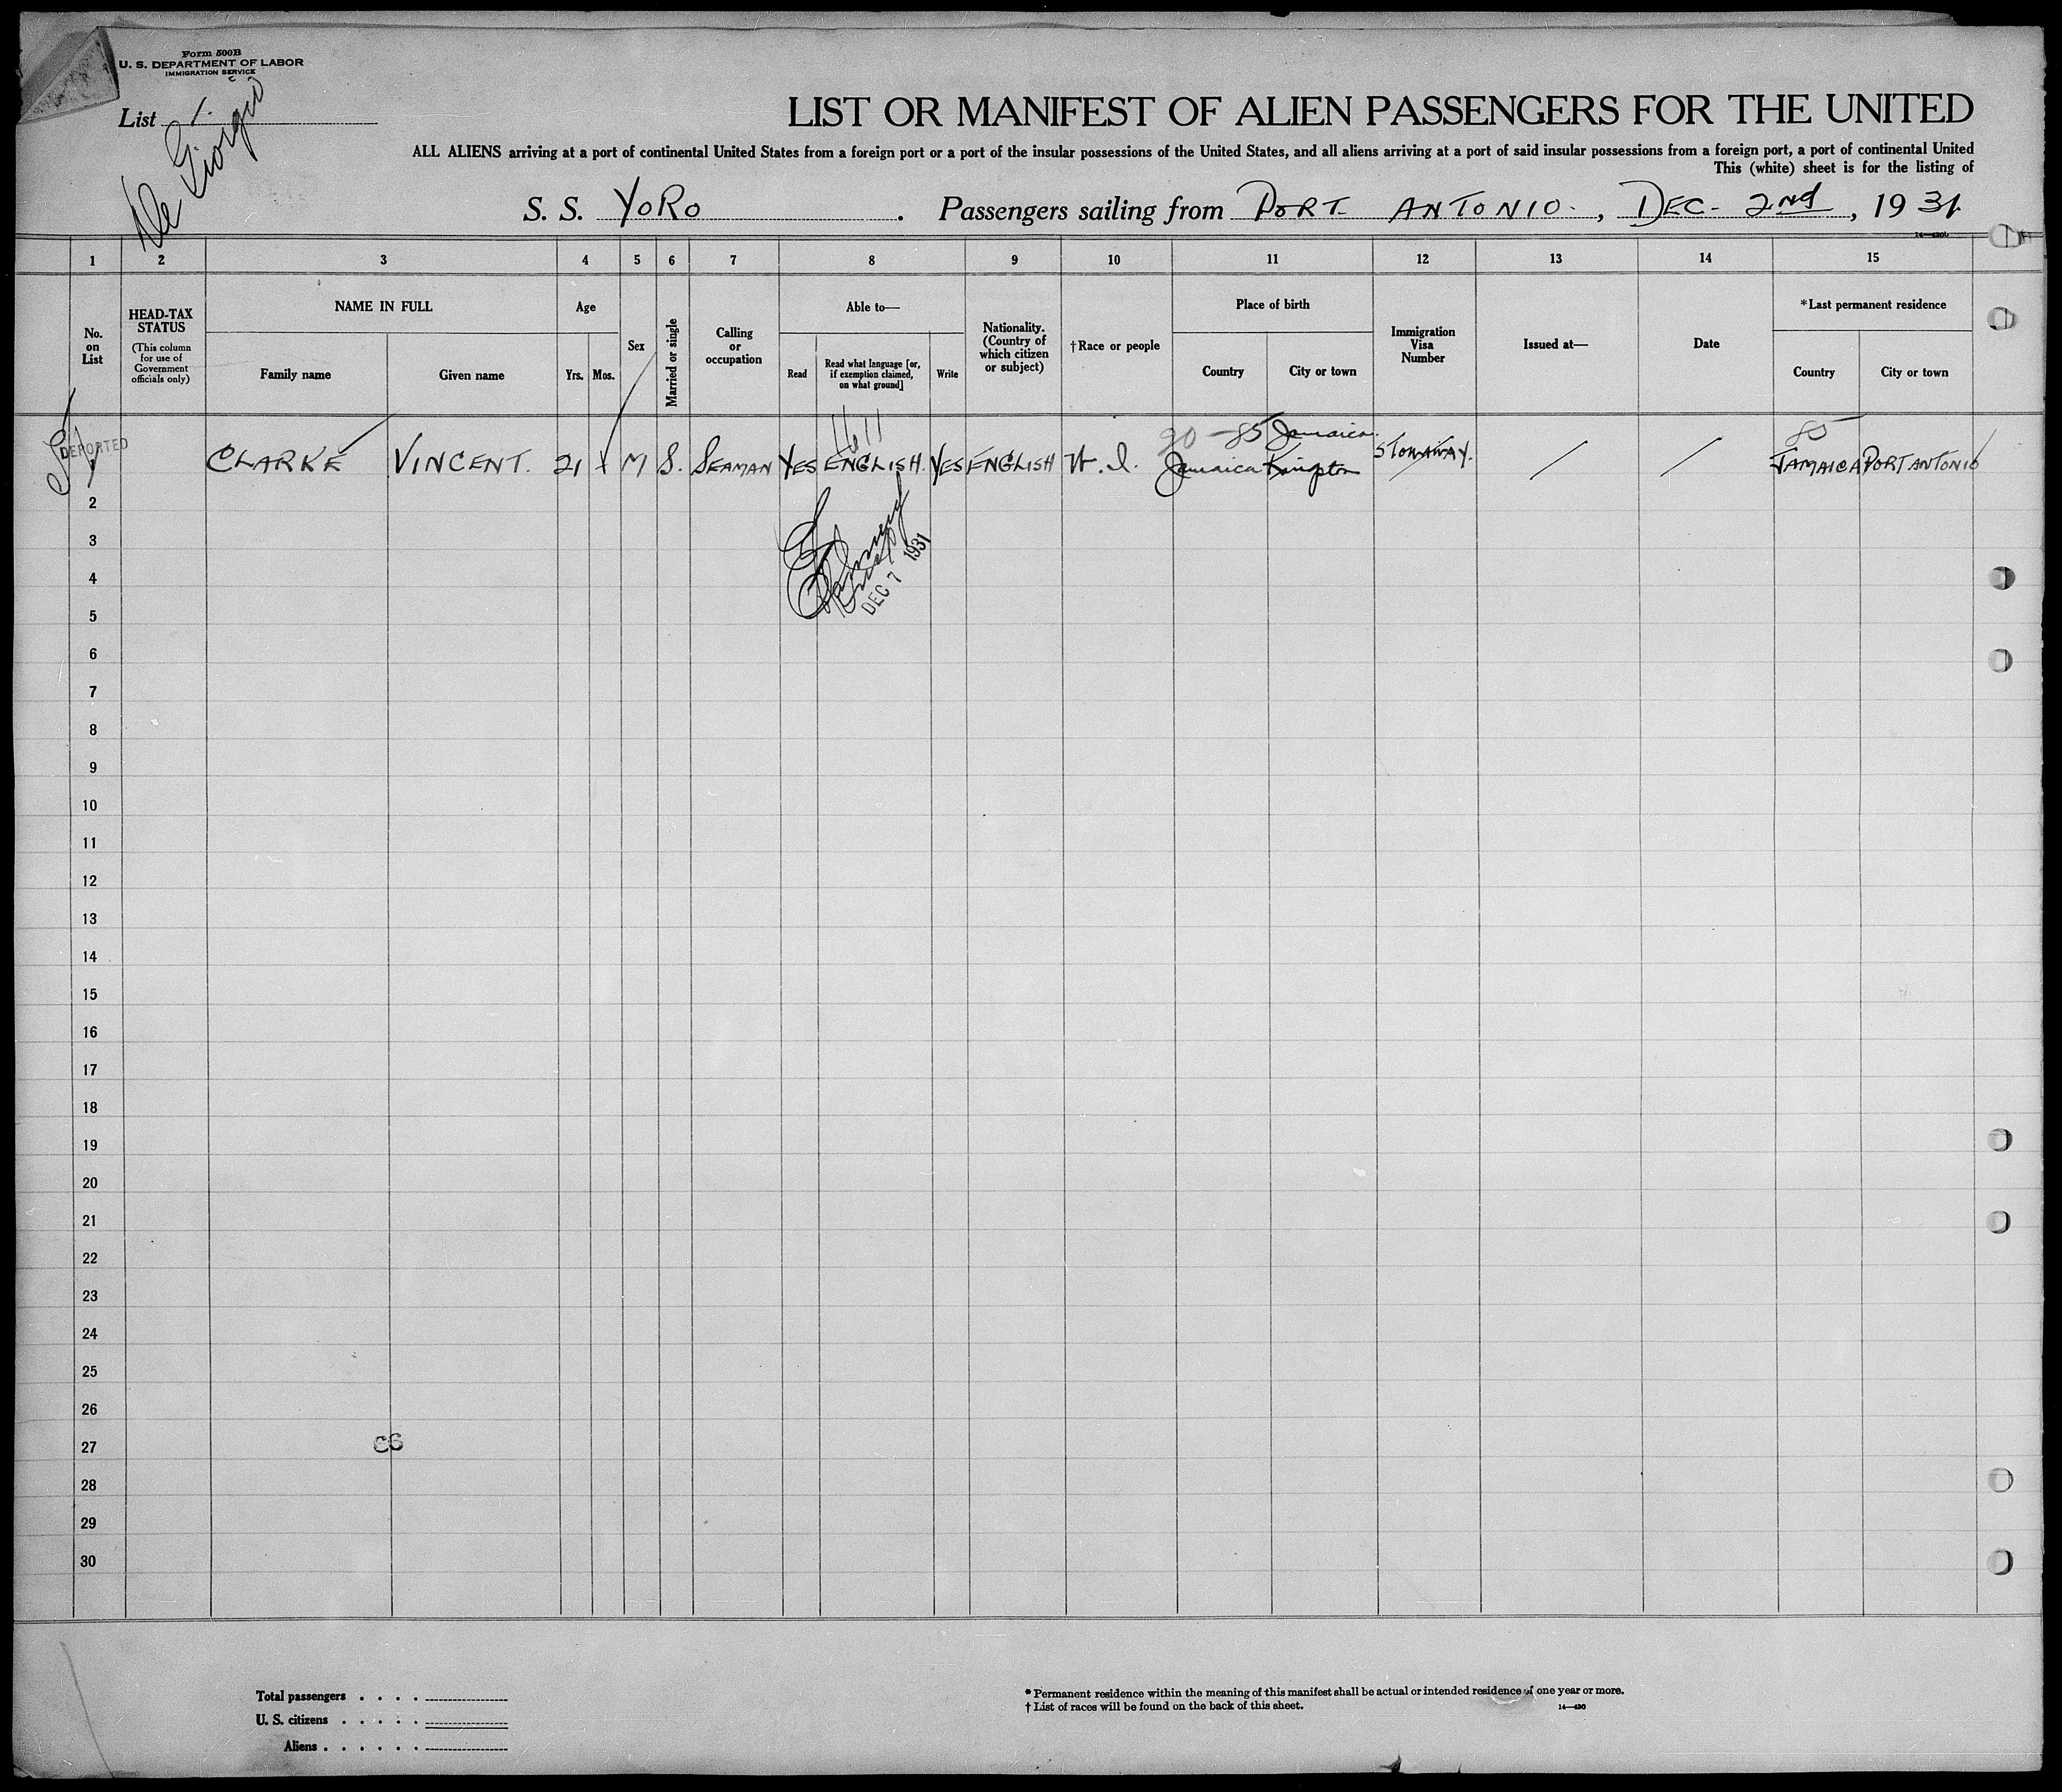 Form 500B
U. S. DEPARTMENT OF LABOR
IMMIGRATION SERVICE
List 1.
De Giorgio
LIST OR MANIFEST OF ALIEN PASSENGERS FOR THE UNITED
ALL ALIENS arriving at a port of continental United States from a foreign port or a port of the insular possessions of the United States, and all aliens arriving at a port of said insular possessions from a foreign port, a port of continental United
This (white) sheet is for the listing of
S. S. YORO. Passengers sailing from PORT ANTONIO., DEC- 2nd, 1931.
1 2 3 4 5 6 7 8 9 10 11 12 13 14 15
No. on List
HEAD-TAX STATUS (This column for use of Government officials only)
NAME IN FULL
Family name Given name
Age
Yrs. Mos.
Sex
Married or single
Calling or occupation
Able to—
Read Read what language [or, if exemption claimed, on what ground] Write
Nationality. (Country of which citizen or subject)
†Race or people
Place of birth
Country City or town
Immigration Visa Number
Issued at—
Date
*Last permanent residence
Country City or town
1611 90 - 85 Jamaica. 85
DEPORTED
1 CLARKE VINCENT. 21 M S. SEAMAN YES ENGLISH. YES ENGLISH W. I. Jamaica Kingston STOWAWAY. / / JAMAICA PORT ANTONIO
2
3
DEC 7 1931
4
5
6
7
8
9
10
11
12
13
14
15
16
17
18
19
20
21
22
23
24
25
26
27
C6
28
29
30
Total passengers . . . .
U. S. citizens . . . . .
Aliens . . . . . .
* Permanent residence within the meaning of this manifest shall be actual or intended residence of one year or more.
† List of races will be found on the back of this sheet.
14—430